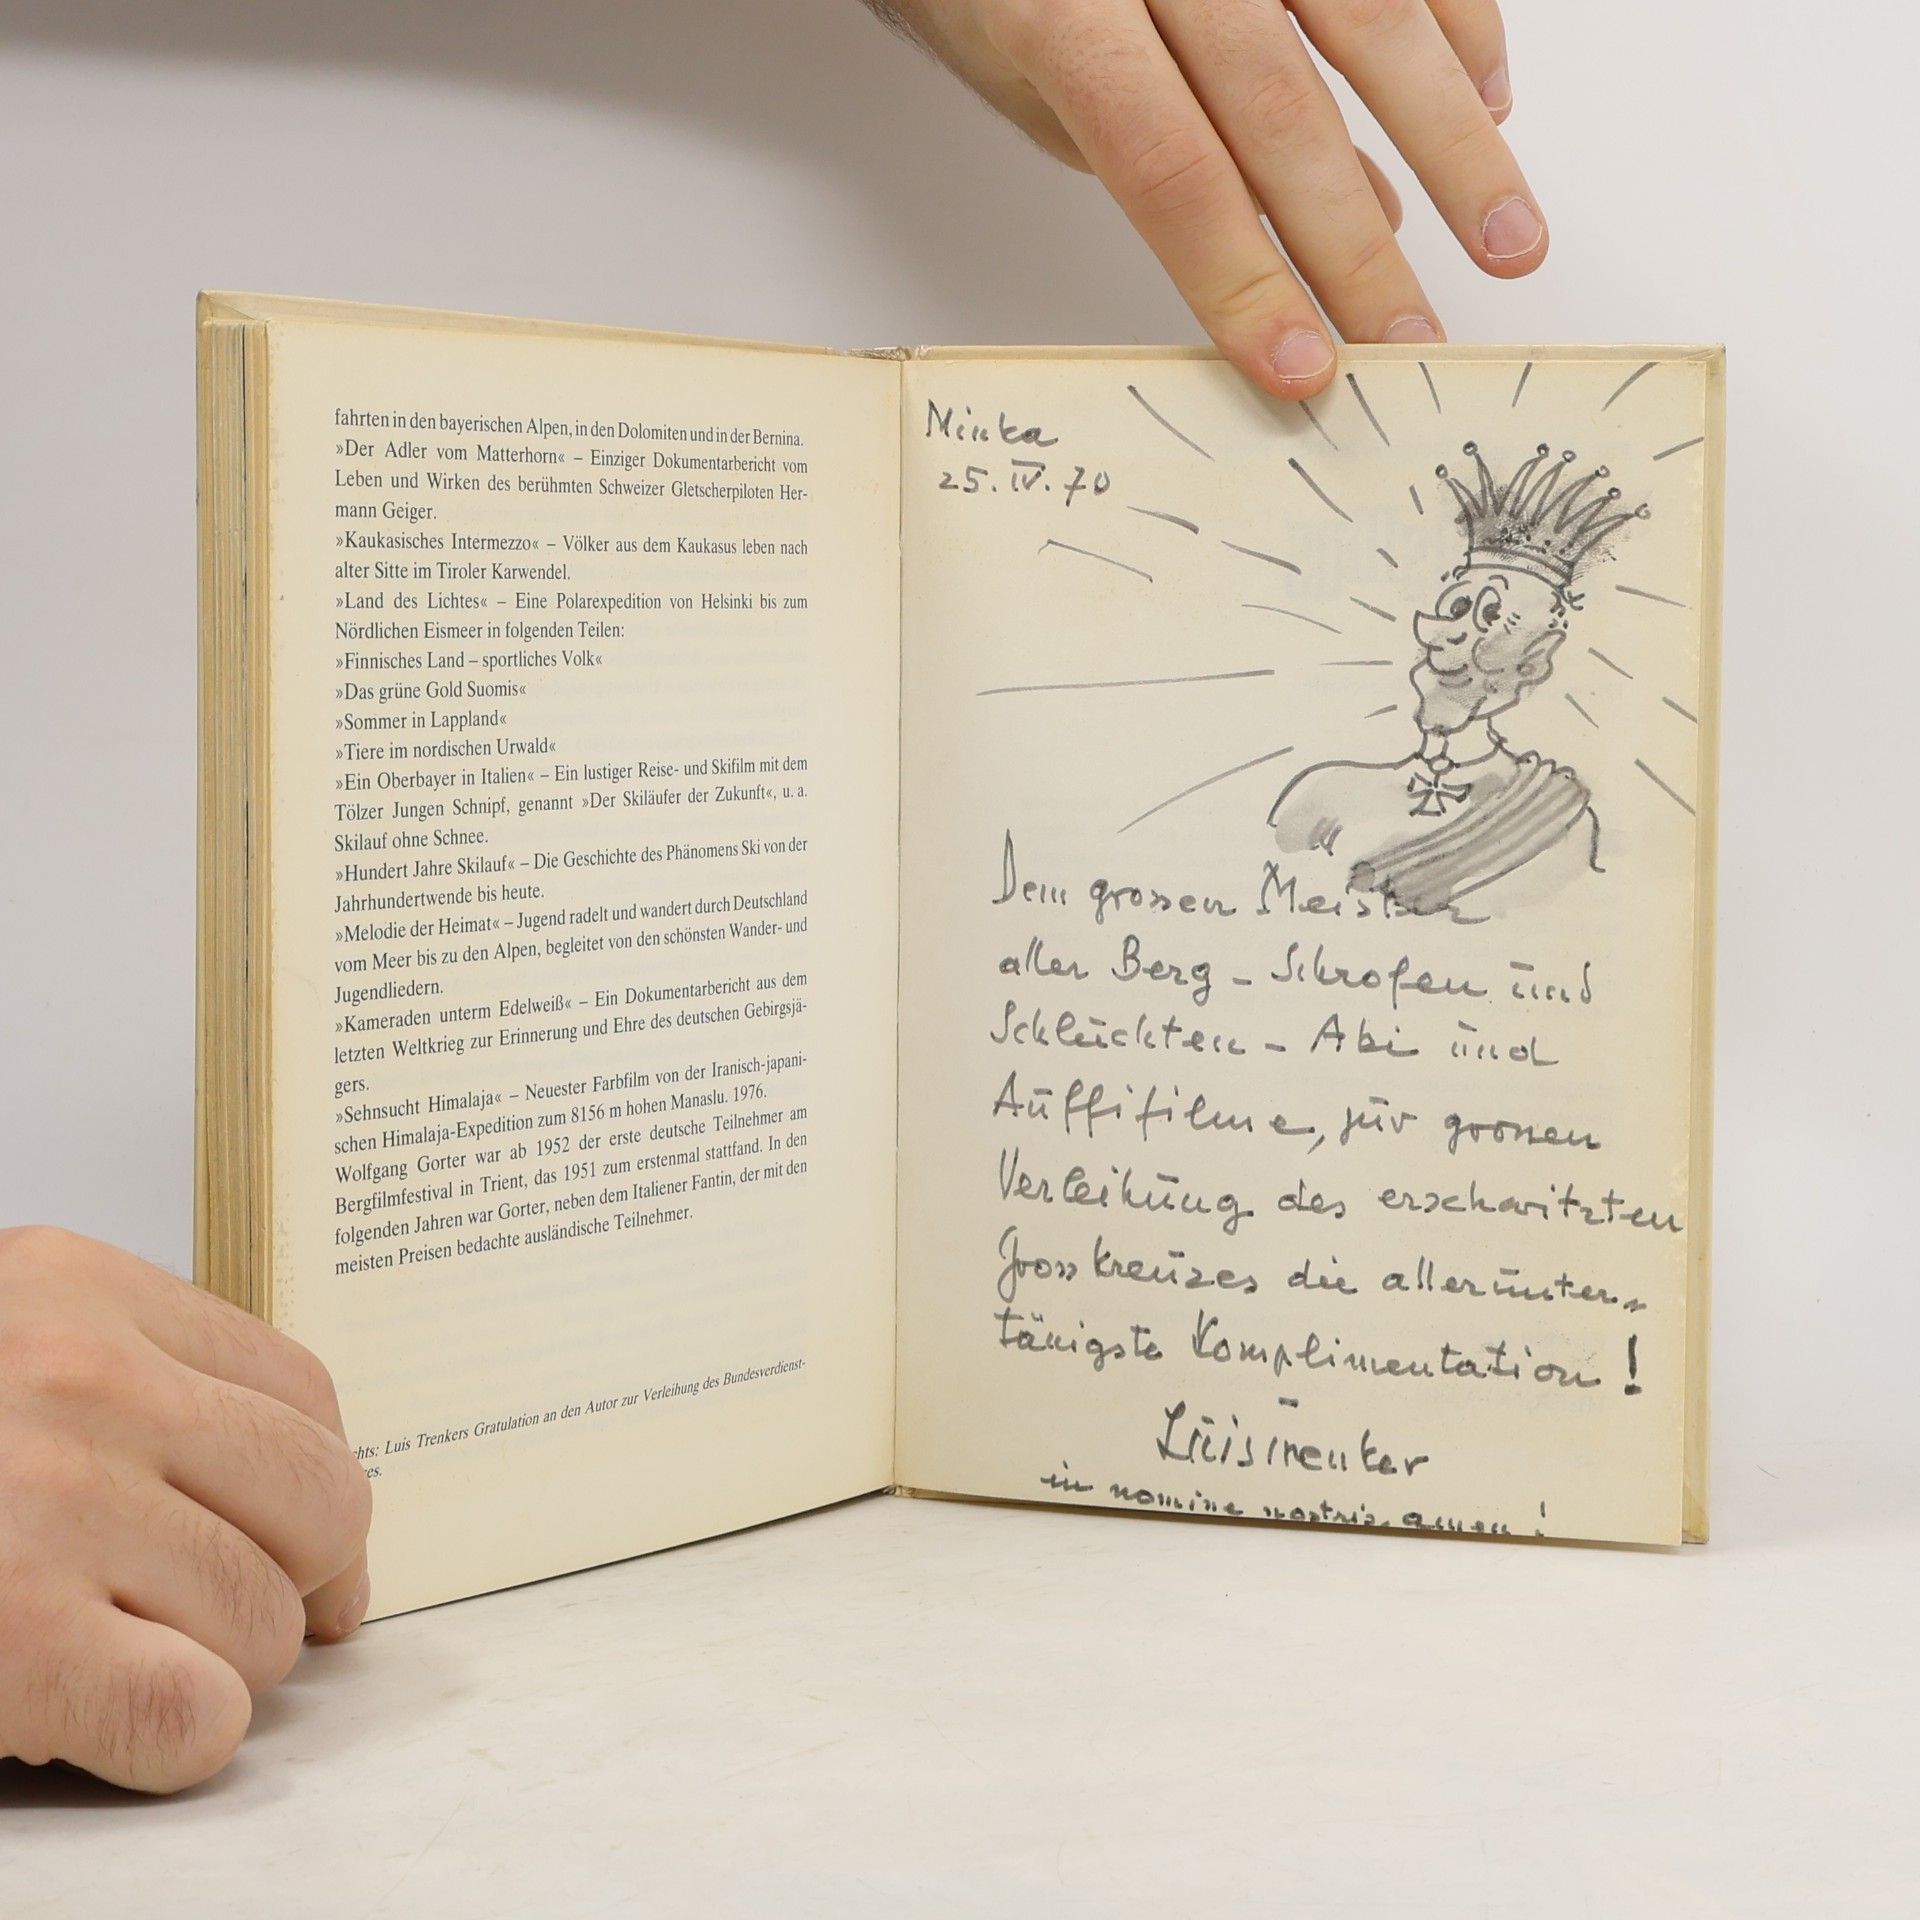 fahrten in den bayerischen Alpen, in den Dolomiten und in der Bernina.
»Der Adler vom Matterhorn« – Einziger Dokumentarbericht vom
Leben und Wirken des berühmten Schweizer Gletscherpiloten Her-
mann Geiger.
»Kaukasisches Intermezzo« – Völker aus dem Kaukasus leben nach
alter Sitte im Tiroler Karwendel.
»Land des Lichtes« – Eine Polarexpedition von Helsinki bis zum
Nördlichen Eismeer in folgenden Teilen:
»Finnisches Land – sportliches Volk«
»Das grüne Gold Suomis«
»Sommer in Lappland«
»Tiere im nordischen Urwald«
»Ein Oberbayer in Italien« – Ein lustiger Reise- und Skifilm mit dem
Tölzer Jungen Schnipf, genannt »Der Skiläufer der Zukunft«, u. a.
Skilauf ohne Schnee.
»Hundert Jahre Skilauf« – Die Geschichte des Phänomens Ski von der
Jahrhundertwende bis heute.
»Melodie der Heimat« – Jugend radelt und wandert durch Deutschland
vom Meer bis zu den Alpen, begleitet von den schönsten Wander- und
Jugendliedern.
»Kameraden unterm Edelweiß« – Ein Dokumentarbericht aus dem
letzten Weltkrieg zur Erinnerung und Ehre des deutschen Gebirgsjä-
gers.
»Sehnsucht Himalaja« – Neuester Farbfilm von der Iranisch-japani-
schen Himalaja-Expedition zum 8156 m hohen Manaslu. 1976.
Wolfgang Gorter war ab 1952 der erste deutsche Teilnehmer am
Bergfilmfestival in Trient, das 1951 zum erstenmal stattfand. In den
folgenden Jahren war Gorter, neben dem Italiener Fantin, der mit den
meisten Preisen bedachte ausländische Teilnehmer.
chts: Luis Trenkers Gratulation an den Autor zur Verleihung des Bundesverdienst-
es.
Minka
25. IV. 70
Dem grossen Meister
aller Berg - Schrofen und
Schluchten - Abi und
Auffifilme, zur grossen
Verleihung des erschwitzten
Grosskreuzes die allerunter-
tänigste Komplimentation!
Luis Trenker
in nomine nostris amen!